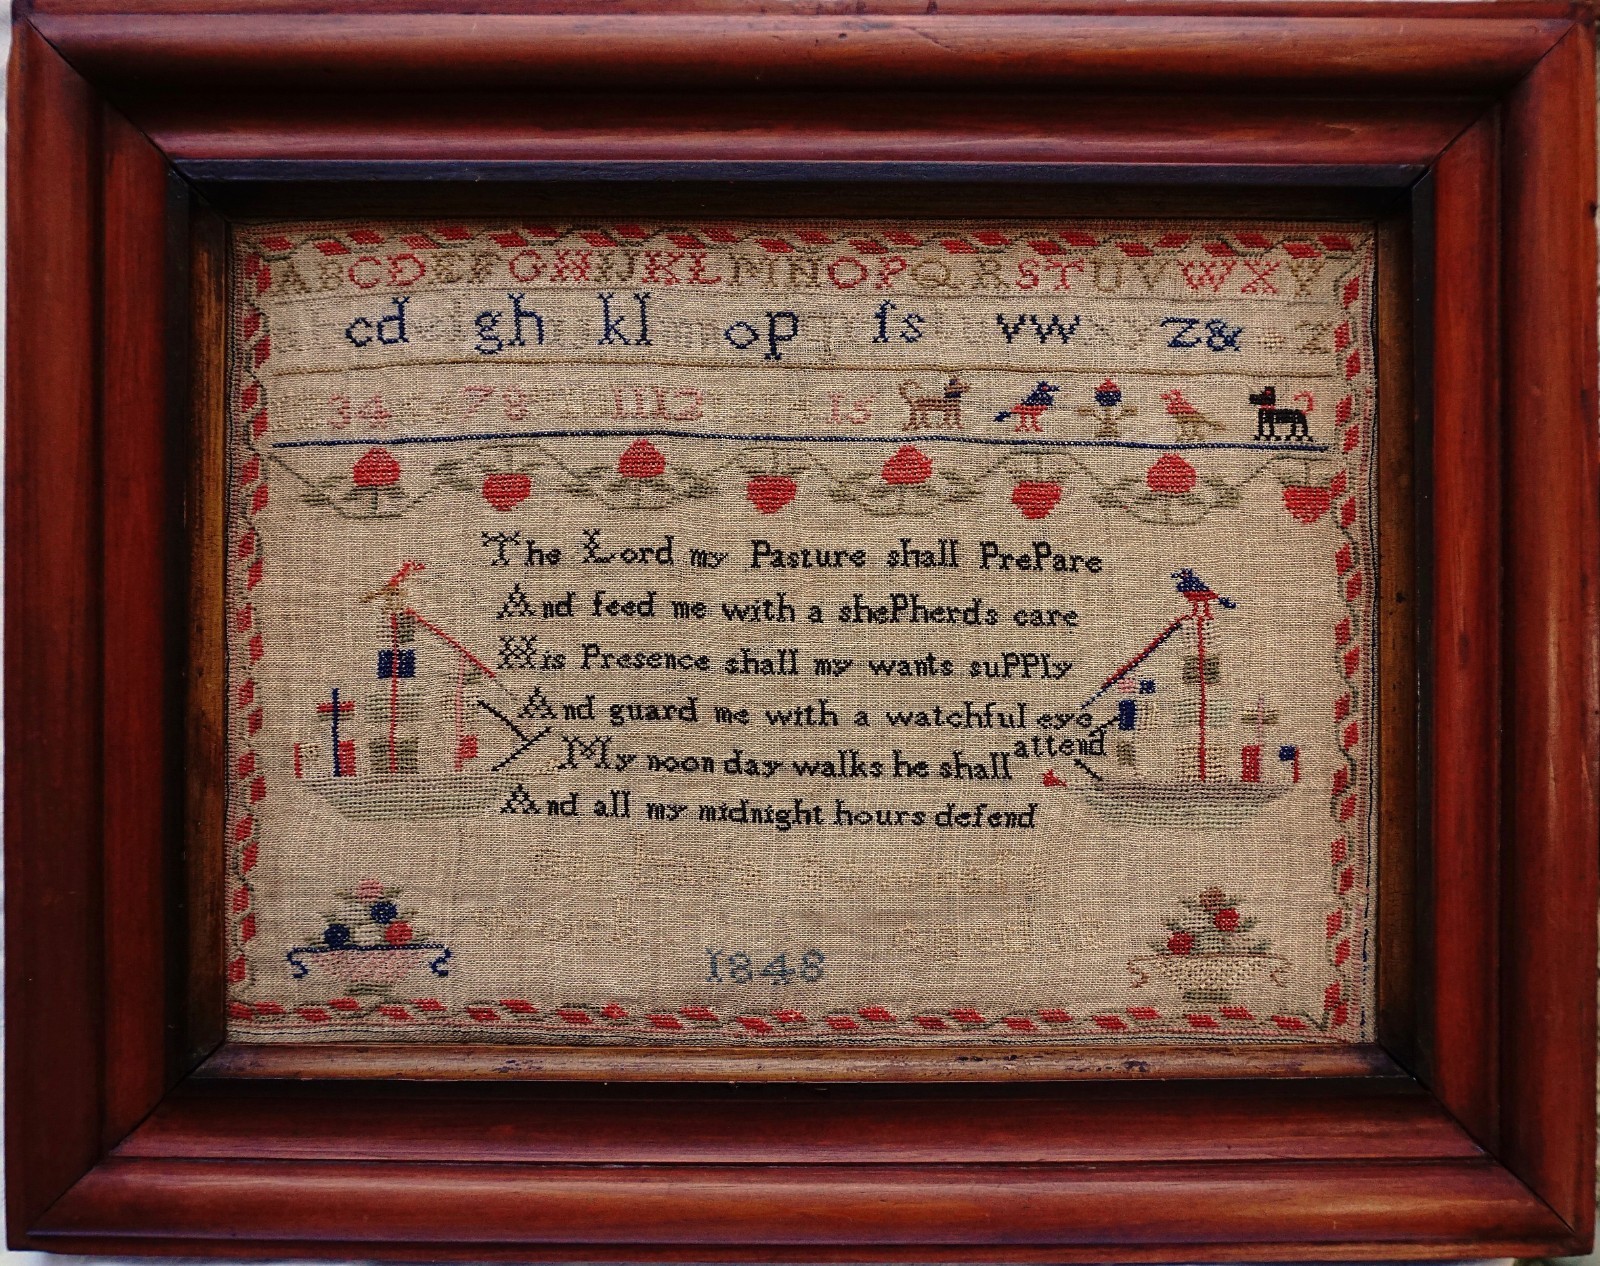 ABCDEFGHIJKLMNOPQRSTUVWXY
cd gh kl op ſs vw z& Z
34 78 1112 15
The Lord my Pasture shall PrePare
And feed me with a shePherds care
His Presence shall my wants suPPly
And guard me with a watchful eye
My noon day walks he shall attend
And all my midnight hours defend
1848